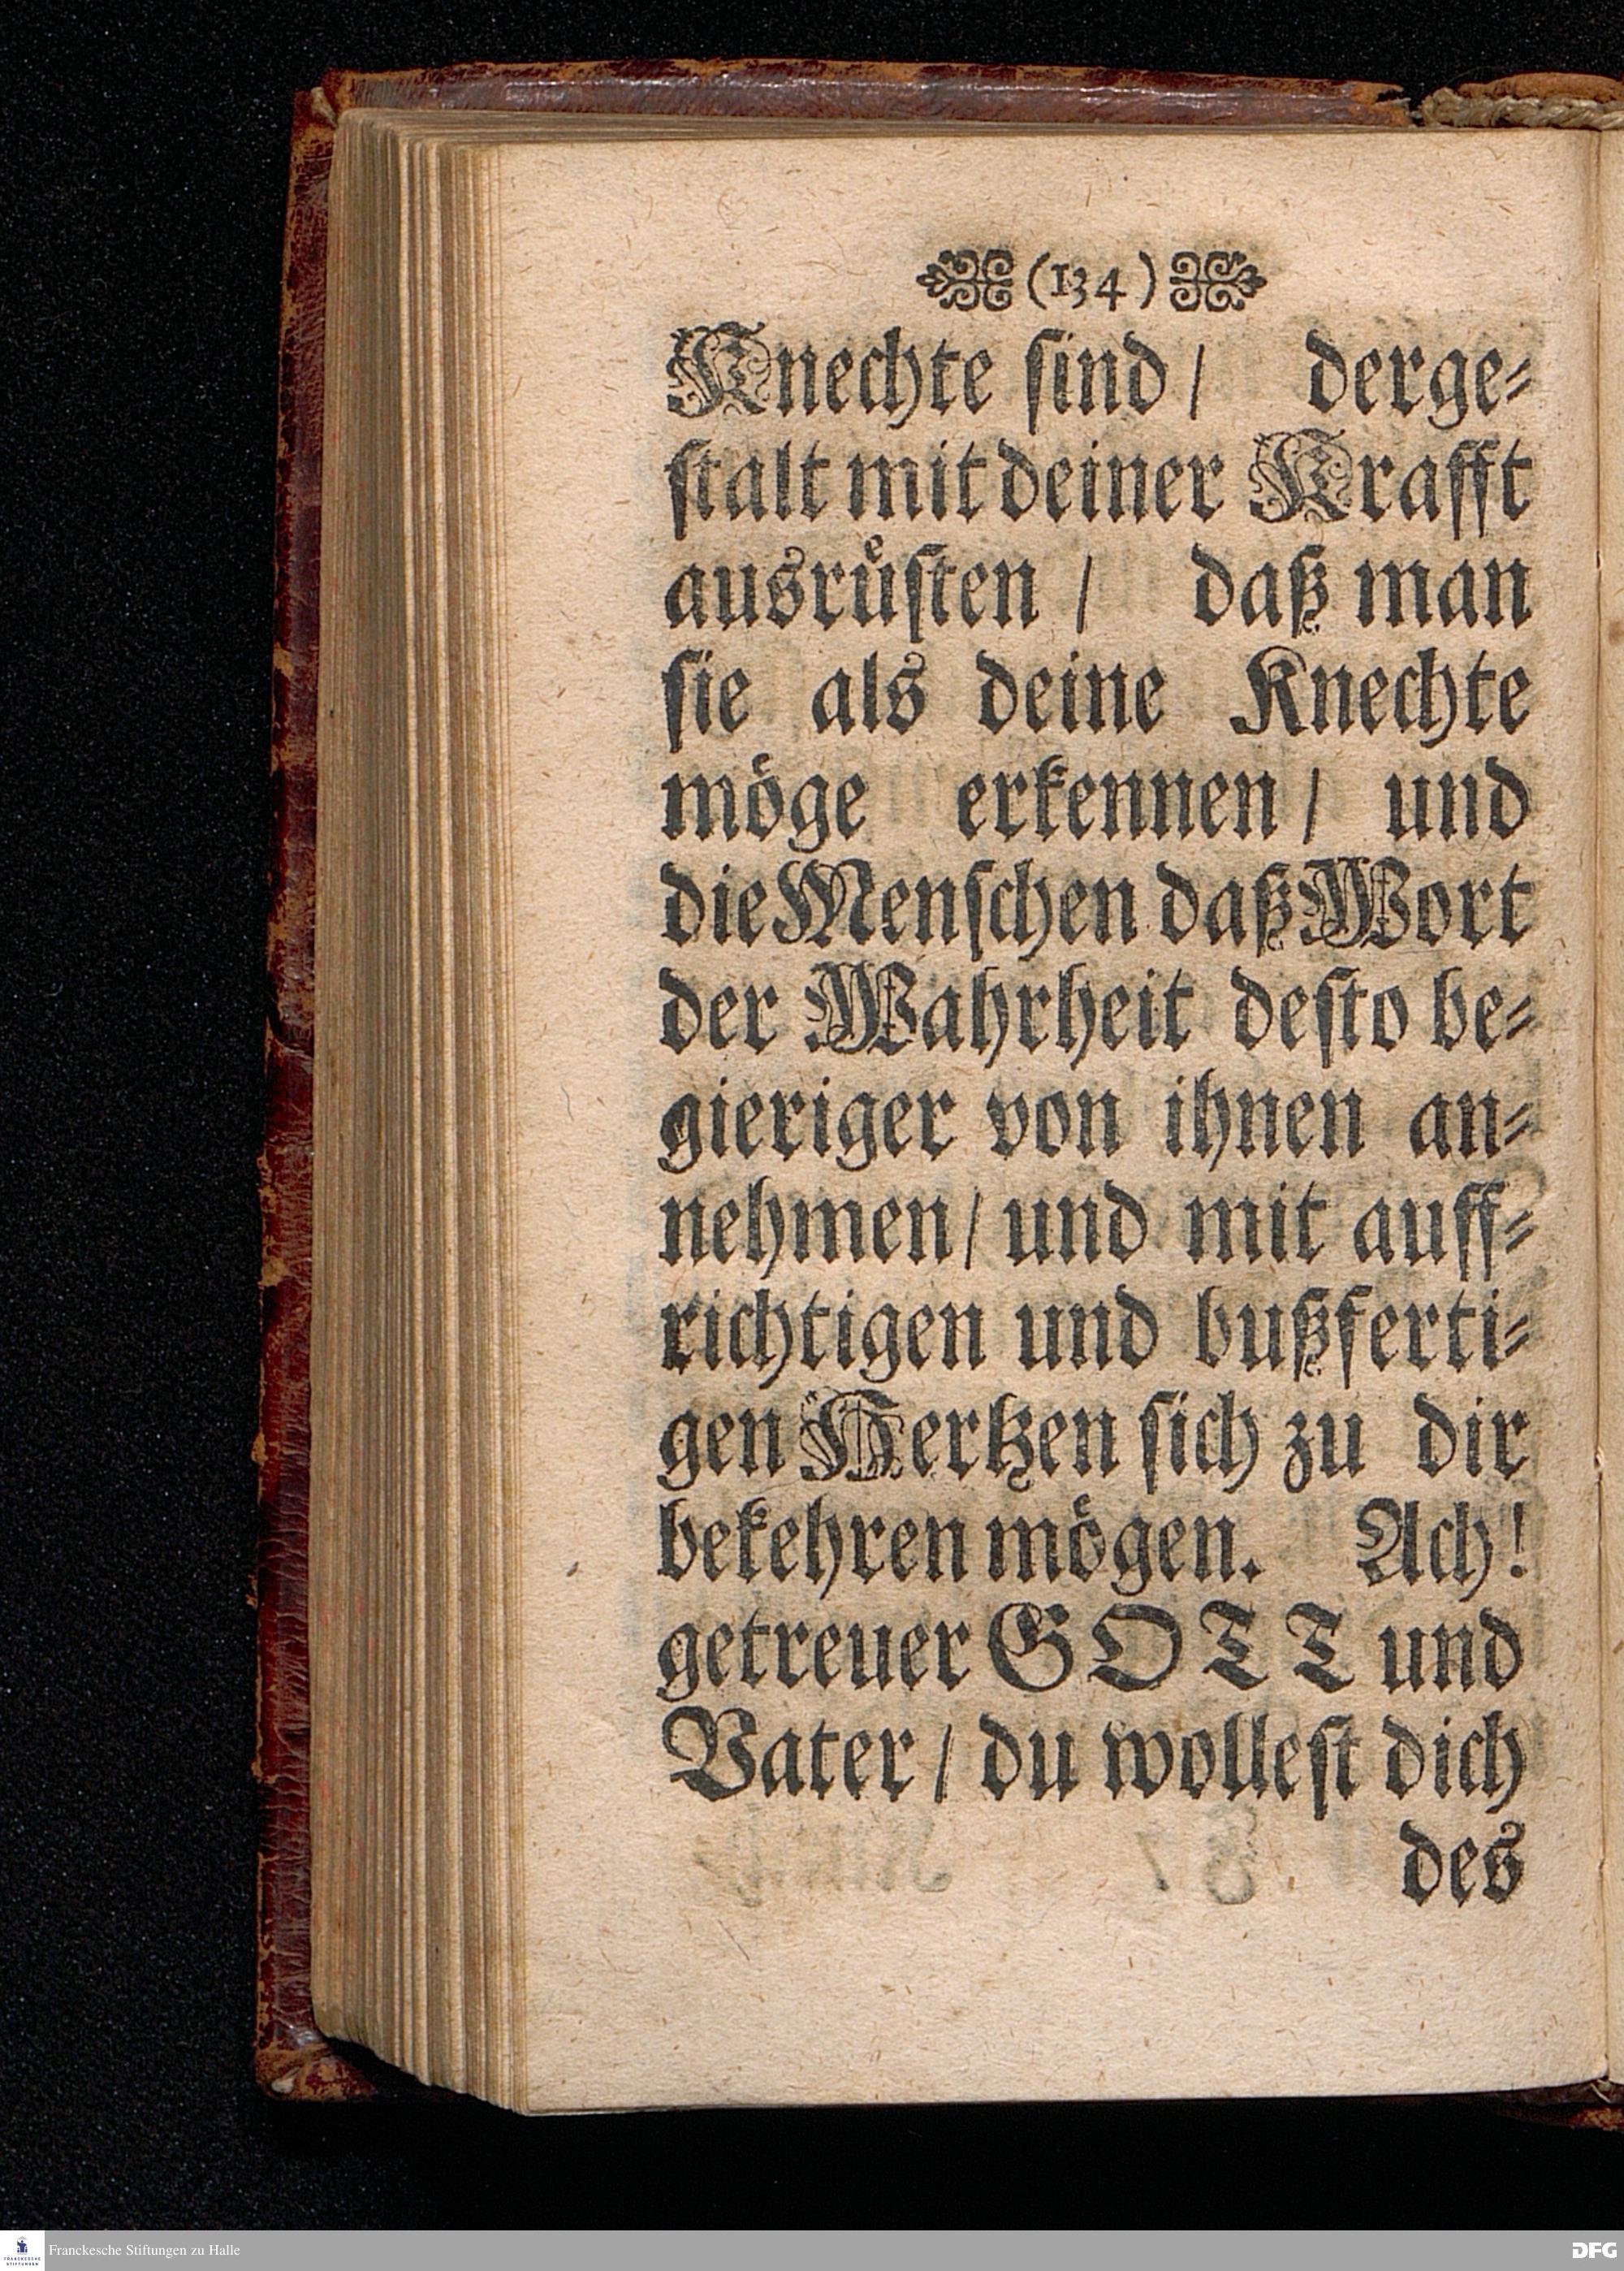 (134)
Knechte ſind / derge⸗
ſtalt mit deiner Krafft
ausrüſten / daß man
ſie als deine Knechte
möge erkennen / und
die Menſchen daß Wort
der Wahrheit deſto be⸗
gieriger von ihnen an⸗
nehmen / und mit auff⸗
richtigen und bußferti⸗
gen Hertzen ſich zu dir
bekehren mögen. Ach!
getreuer GOTT und
Vater / du wolleſt dich
des
FRANCKESCHE STIFTUNGEN
Franckesche Stiftungen zu Halle
DFG